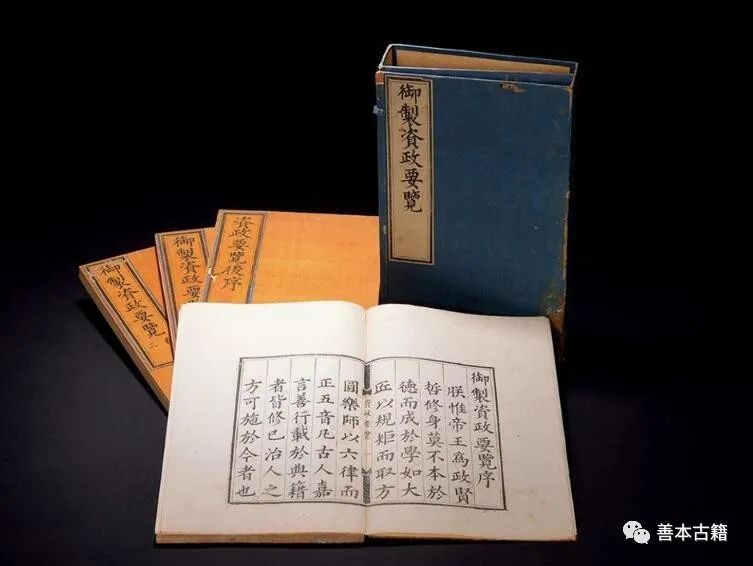 御製資政要覽
資政要覽後序
御製資政要
御製資政要覽
御製資政要覽序
朕惟帝王爲政賢
哲修身莫不本於
德而成於學如大
匠以規矩而取方
圓樂師以六律而
正五音凡古人嘉
言善行載於典籍
者皆修己治人之
方可施於今者也
資政要覽
善本古籍